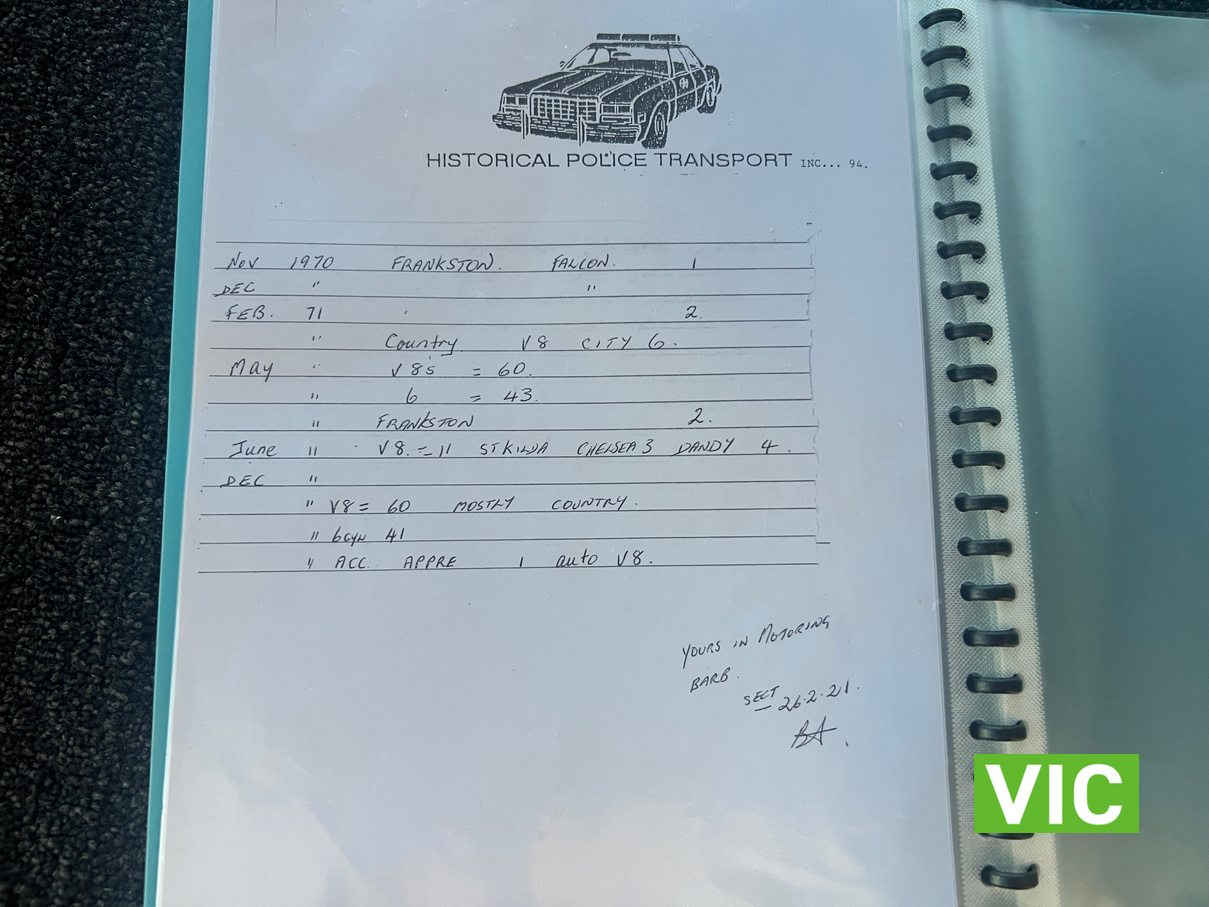 HISTORICAL POLICE TRANSPORT INC... 94.
NOV 1970 FRANKSTON. FALCON. 1
DEC " "
FEB. 71 " 2.
" Country V8 CITY 6.
May " V8s = 60.
" 6 = 43.
" FRANKSTON 2.
June " V8. = 11 ST KILDA CHELSEA 3 DANDY 4.
DEC "
" V8 = 60 MOSTLY COUNTRY.
" 6CYN 41
" ACC. APPRE 1 auto V8.
YOURS IN MOTORING
BARB.
SECT
26.2.21.
BA.
VIC